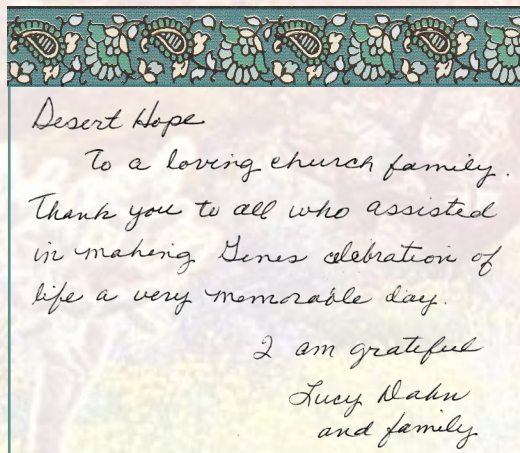 Desert Hope
To a loving church family.
Thank you to all who assisted
in making Genes celebration of
life a very memorable day.
I am grateful
Lucy Dahn
and family